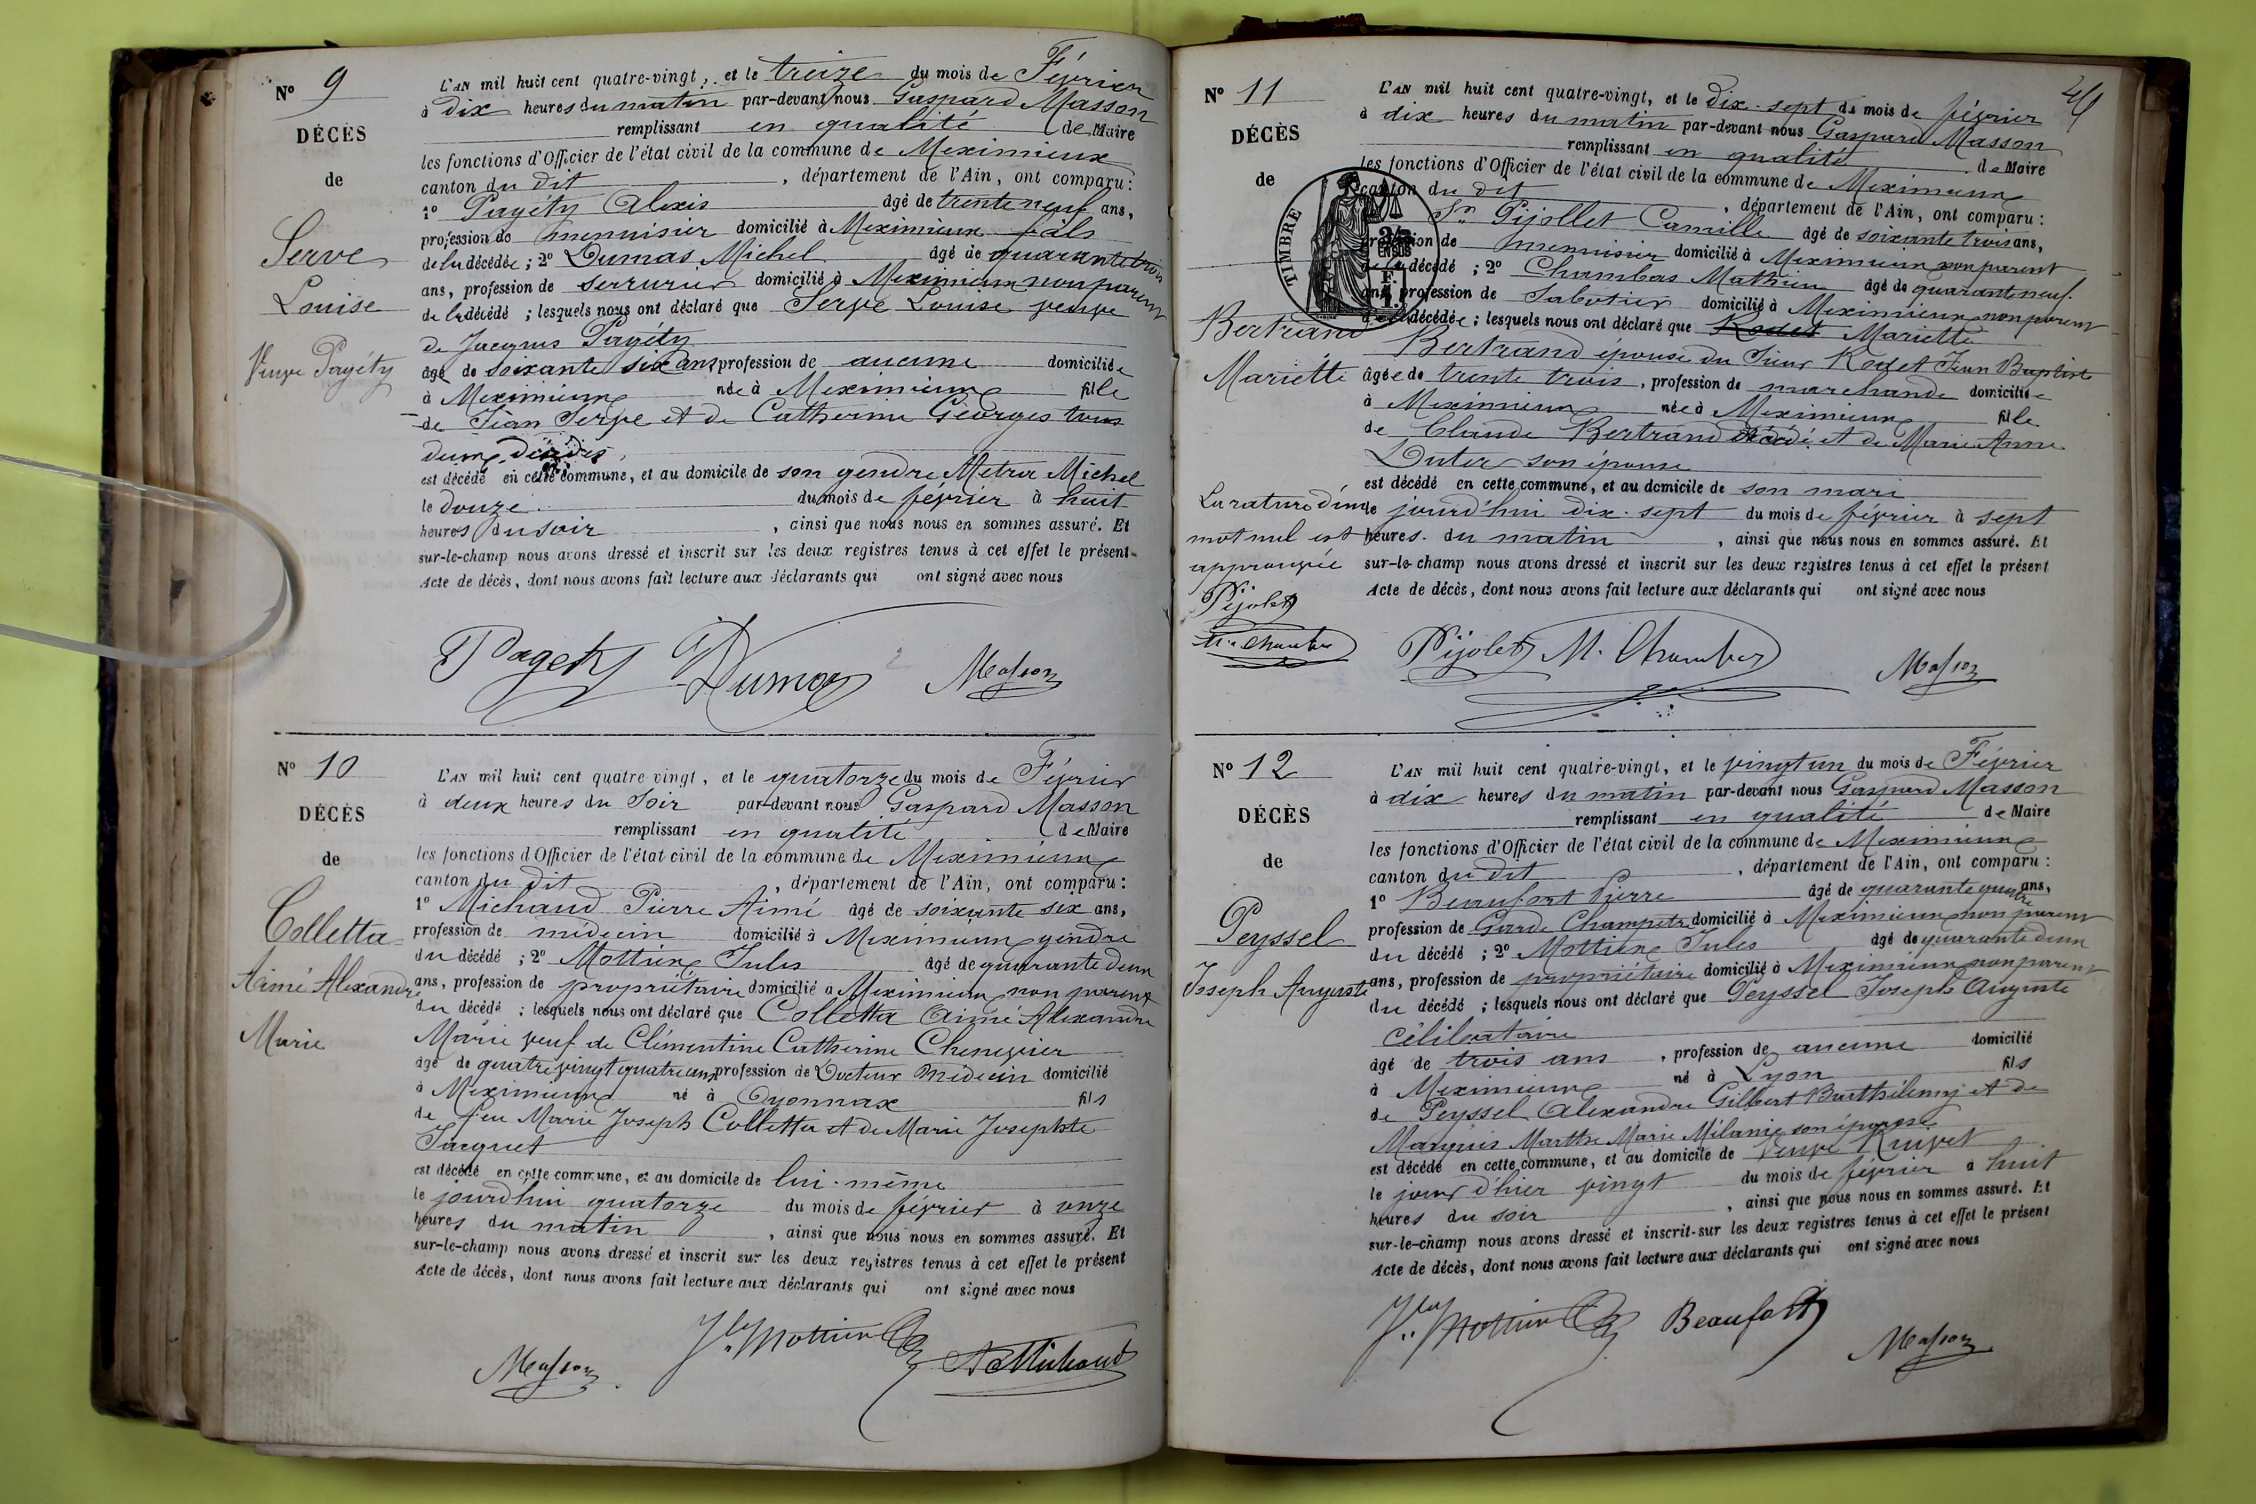 N° 9
DÉCÈS
de
Serve
Louise
Veuve Pagéty
L'AN mil huit cent quatre-vingt, et le treize du mois de Février
à dix heures du matin par-devant nous Gaspard Masson
remplissant en qualité de Maire
les fonctions d'Officier de l'état civil de la commune de Meximieux
canton du dit, département de l'Ain, ont comparu :
1° Pagéty Alexis âgé de trente neuf ans,
profession de menuisier domicilié à Meximieux fils
de la décédée ; 2° Dumas Michel âgé de quarante trois
ans, profession de serrurier domicilié à Meximieux non parent
de la décédé ; lesquels nous ont déclaré que Serve Louise veuve
de Jacques Pagéty
âgé de soixante six ans profession de aucune domiciliée
à Meximieux née à Meximieux fille
de Jean Serve et de Catherine Georges tous
deux décédés
est décédé en cette commune, et au domicile de son gendre Metra Michel
le douze du mois de février à huit
heures du soir, ainsi que nous nous en sommes assuré. Et
sur-le-champ nous avons dressé et inscrit sur les deux registres tenus à cet effet le présent
Acte de décès, dont nous avons fait lecture aux déclarants qui ont signé avec nous
Pagety Dumas Masson
N° 10
DÉCÈS
de
Colletta
Aimé Alexandre
Marie
L'AN mil huit cent quatre-vingt, et le quatorze du mois de Février
à deux heures du Soir par-devant nous Gaspard Masson
remplissant en qualité de Maire
les fonctions d'Officier de l'état civil de la commune de Meximieux
canton du dit, département de l'Ain, ont comparu :
1° Michaud Pierre Aimé âgé de soixante six ans,
profession de médecin domicilié à Meximieux gendre
du décédé ; 2° Mottieux Jules âgé de quarante deux
ans, profession de propriétaire domicilié à Meximieux non parent
du décédé ; lesquels nous ont déclaré que Colletta Aimé Alexandre
Marie veuf de Clémentine Catherine Chenevier
âgé de quatre vingt quatre ans profession de Docteur Médecin domicilié
à Meximieux né à Oyonnax fils
de feu Marie Joseph Colletta et de Marie Josephte
Jacquet
est décédé en cette commune, et au domicile de lui-même
le jourd'hui quatorze du mois de février à onze
heures du matin, ainsi que nous nous en sommes assuré. Et
sur-le-champ nous avons dressé et inscrit sur les deux registres tenus à cet effet le présent
Acte de décès, dont nous avons fait lecture aux déclarants qui ont signé avec nous
Masson Jles Mottieux A Michaud
N° 11
DÉCÈS
de
Bertrand
Mariette
La rature d'un
mot nul est
approuvée
Pijolet
M. Chambas
TIMBRE
L'AN mil huit cent quatre-vingt, et le dix-sept du mois de février
à dix heures du matin par-devant nous Gaspard Masson
remplissant en qualité de Maire
les fonctions d'Officier de l'état civil de la commune de Meximieux
canton du dit, département de l'Ain, ont comparu :
Sr Pijollet Camille âgé de soixante trois ans,
profession de menuisier domicilié à Meximieux non parent
de la décédé ; 2° Chambas Mathieu âgé de quarante neuf
ans, profession de Sabotier domicilié à Meximieux non parent
de la décédée ; lesquels nous ont déclaré que Rodet Mariette
Bertrand épouse du Sieur Rodet Jean Baptiste
âgée de trente trois, profession de marchande domiciliée
à Meximieux née à Meximieux fille
de Claude Bertrand décédé et de Marie Anne
Duter son épouse
est décédé en cette commune, et au domicile de son mari
le jourd'hui dix-sept du mois de février à sept
heures du matin, ainsi que nous nous en sommes assuré. Et
sur-le-champ nous avons dressé et inscrit sur les deux registres tenus à cet effet le présent
Acte de décès, dont nous avons fait lecture aux déclarants qui ont signé avec nous
Pijolet M. Chambas Masson
N° 12
DÉCÈS
de
Peyssel
Joseph Auguste
L'AN mil huit cent quatre-vingt, et le vingt un du mois de Février
à dix heures du matin par-devant nous Gaspard Masson
remplissant en qualité de Maire
les fonctions d'Officier de l'état civil de la commune de Meximieux
canton du dit, département de l'Ain, ont comparu :
1° Beaufort Pierre âgé de quarante quatre ans,
profession de Garde Champetre domicilié à Meximieux non parent
du décédé ; 2° Mottieux Jules âgé de quarante deux
ans, profession de propriétaire domicilié à Meximieux non parent
du décédé ; lesquels nous ont déclaré que Peyssel Joseph Auguste
célibataire
âgé de trois ans, profession de aucune domicilié
à Meximieux né à Lyon fils
de Peyssel Alexandre Gilbert Barthélemy et de
Marquis Marthe Marie Mélanie son épouse
est décédé en cette commune, et au domicile de Veuve Ruivet
le jour d'hier vingt du mois de février à huit
heures du soir, ainsi que nous nous en sommes assuré. Et
sur-le-champ nous avons dressé et inscrit sur les deux registres tenus à cet effet le présent
Acte de décès, dont nous avons fait lecture aux déclarants qui ont signé avec nous
Jles Mottieux Beaufort Masson